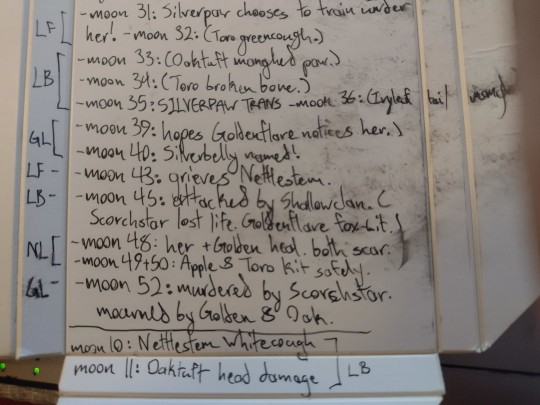 -moon 31: Silverpaw chooses to train under
LF [ her! -moon 32: (Toro greencough.)
-moon 33: (Oaktuft mangled paw.)
LB [ -moon 34: (Toro broken bone.)
-moon 35: SILVERPAW TRANS -moon 36: (Ivyleaf tail
-moon 39: hopes Goldenflare notices her.)
GL [ -moon 40: Silverbelly named!
LF - -moon 43: grieves Nettlestem.
LB - -moon 45: attacked by Shallowclan. (
Scorchstar lost life. Goldenflare fox-bit.)
NL [ -moon 48: her + Golden heal. both scar.
-moon 49+50: Apple & Toro kit safely.
GL - -moon 52: murdered by Scorchstar.
mourned by Golden & Oak.
moon 10: Nettlestem whitecough
moon 11: Oaktuft head damage ] LB